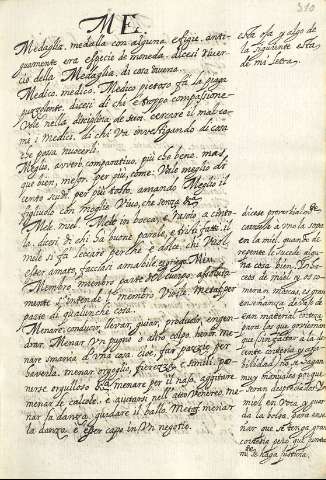 310
ME
Medaglia, medalla con alguna efigie, anti-
guamente era especie de moneda. dicesi river-
cio della Medaglia, di cosa buena.
Medico, medico. Medico pietoso fà la piaga
puzzolente. dicesi di chi è troppo compasione
Vale nella disciplina de suoi. cercare il mal co-
mi i Medici, di chi va investigando di cosa
che possa nuocerli.
Meglio, avverb. comparativo, più che bene. mas
que bien, mejor. per più, come. Vale meglio di
cento scudi. per più tosto. amando Meglio il
figliuolo con moglie vivo, che senza
Mele, miel. Mele in bocca, e rasoio a cinto-
la, dicesi di chi hà buone parole, e tristi fatti. il
mele si fà leccar perche è dolce. chi vuol
esser amato, facciasi amabile
Membro, miembro parte del cuerpo. assoluta-
mente s'intende l' membro Virile. Metaf. per
parte di qualunche cosa.
Menare, conducir, llevar, guiar, producir, engen-
drar. Menar un pugno o altro colpo, herir. me-
nare smania d'una cosa, cioè, far pazzie per
haverla. menar orgoglio, fierezza e simili, por
urse orgulloso menare per il naso, aggirare
menar le calcole. è aiutarsi nell' atto Venereo. me-
nar la danza, guidare il ballo. Metaf. menar
la danza, è esser capo in un negotio.
esta ofa y algo de
la siguiente esta
de mi letra.
dicese proverbialm.
la sopa
en la miel, quando de
repente le sucede alguna
cosa bien.
ceto de miel y
moran moscas, es gran
enseñança
material corteza
para los que
que sin faltar a la
cortesia y
bilidad, no se hagan
muy manuales porque
seran despreciados.
miel en voca, y guar-
da la bolsa. para ense-
nar que se tenga gran
cortesia pero que
mi se haga justicia.